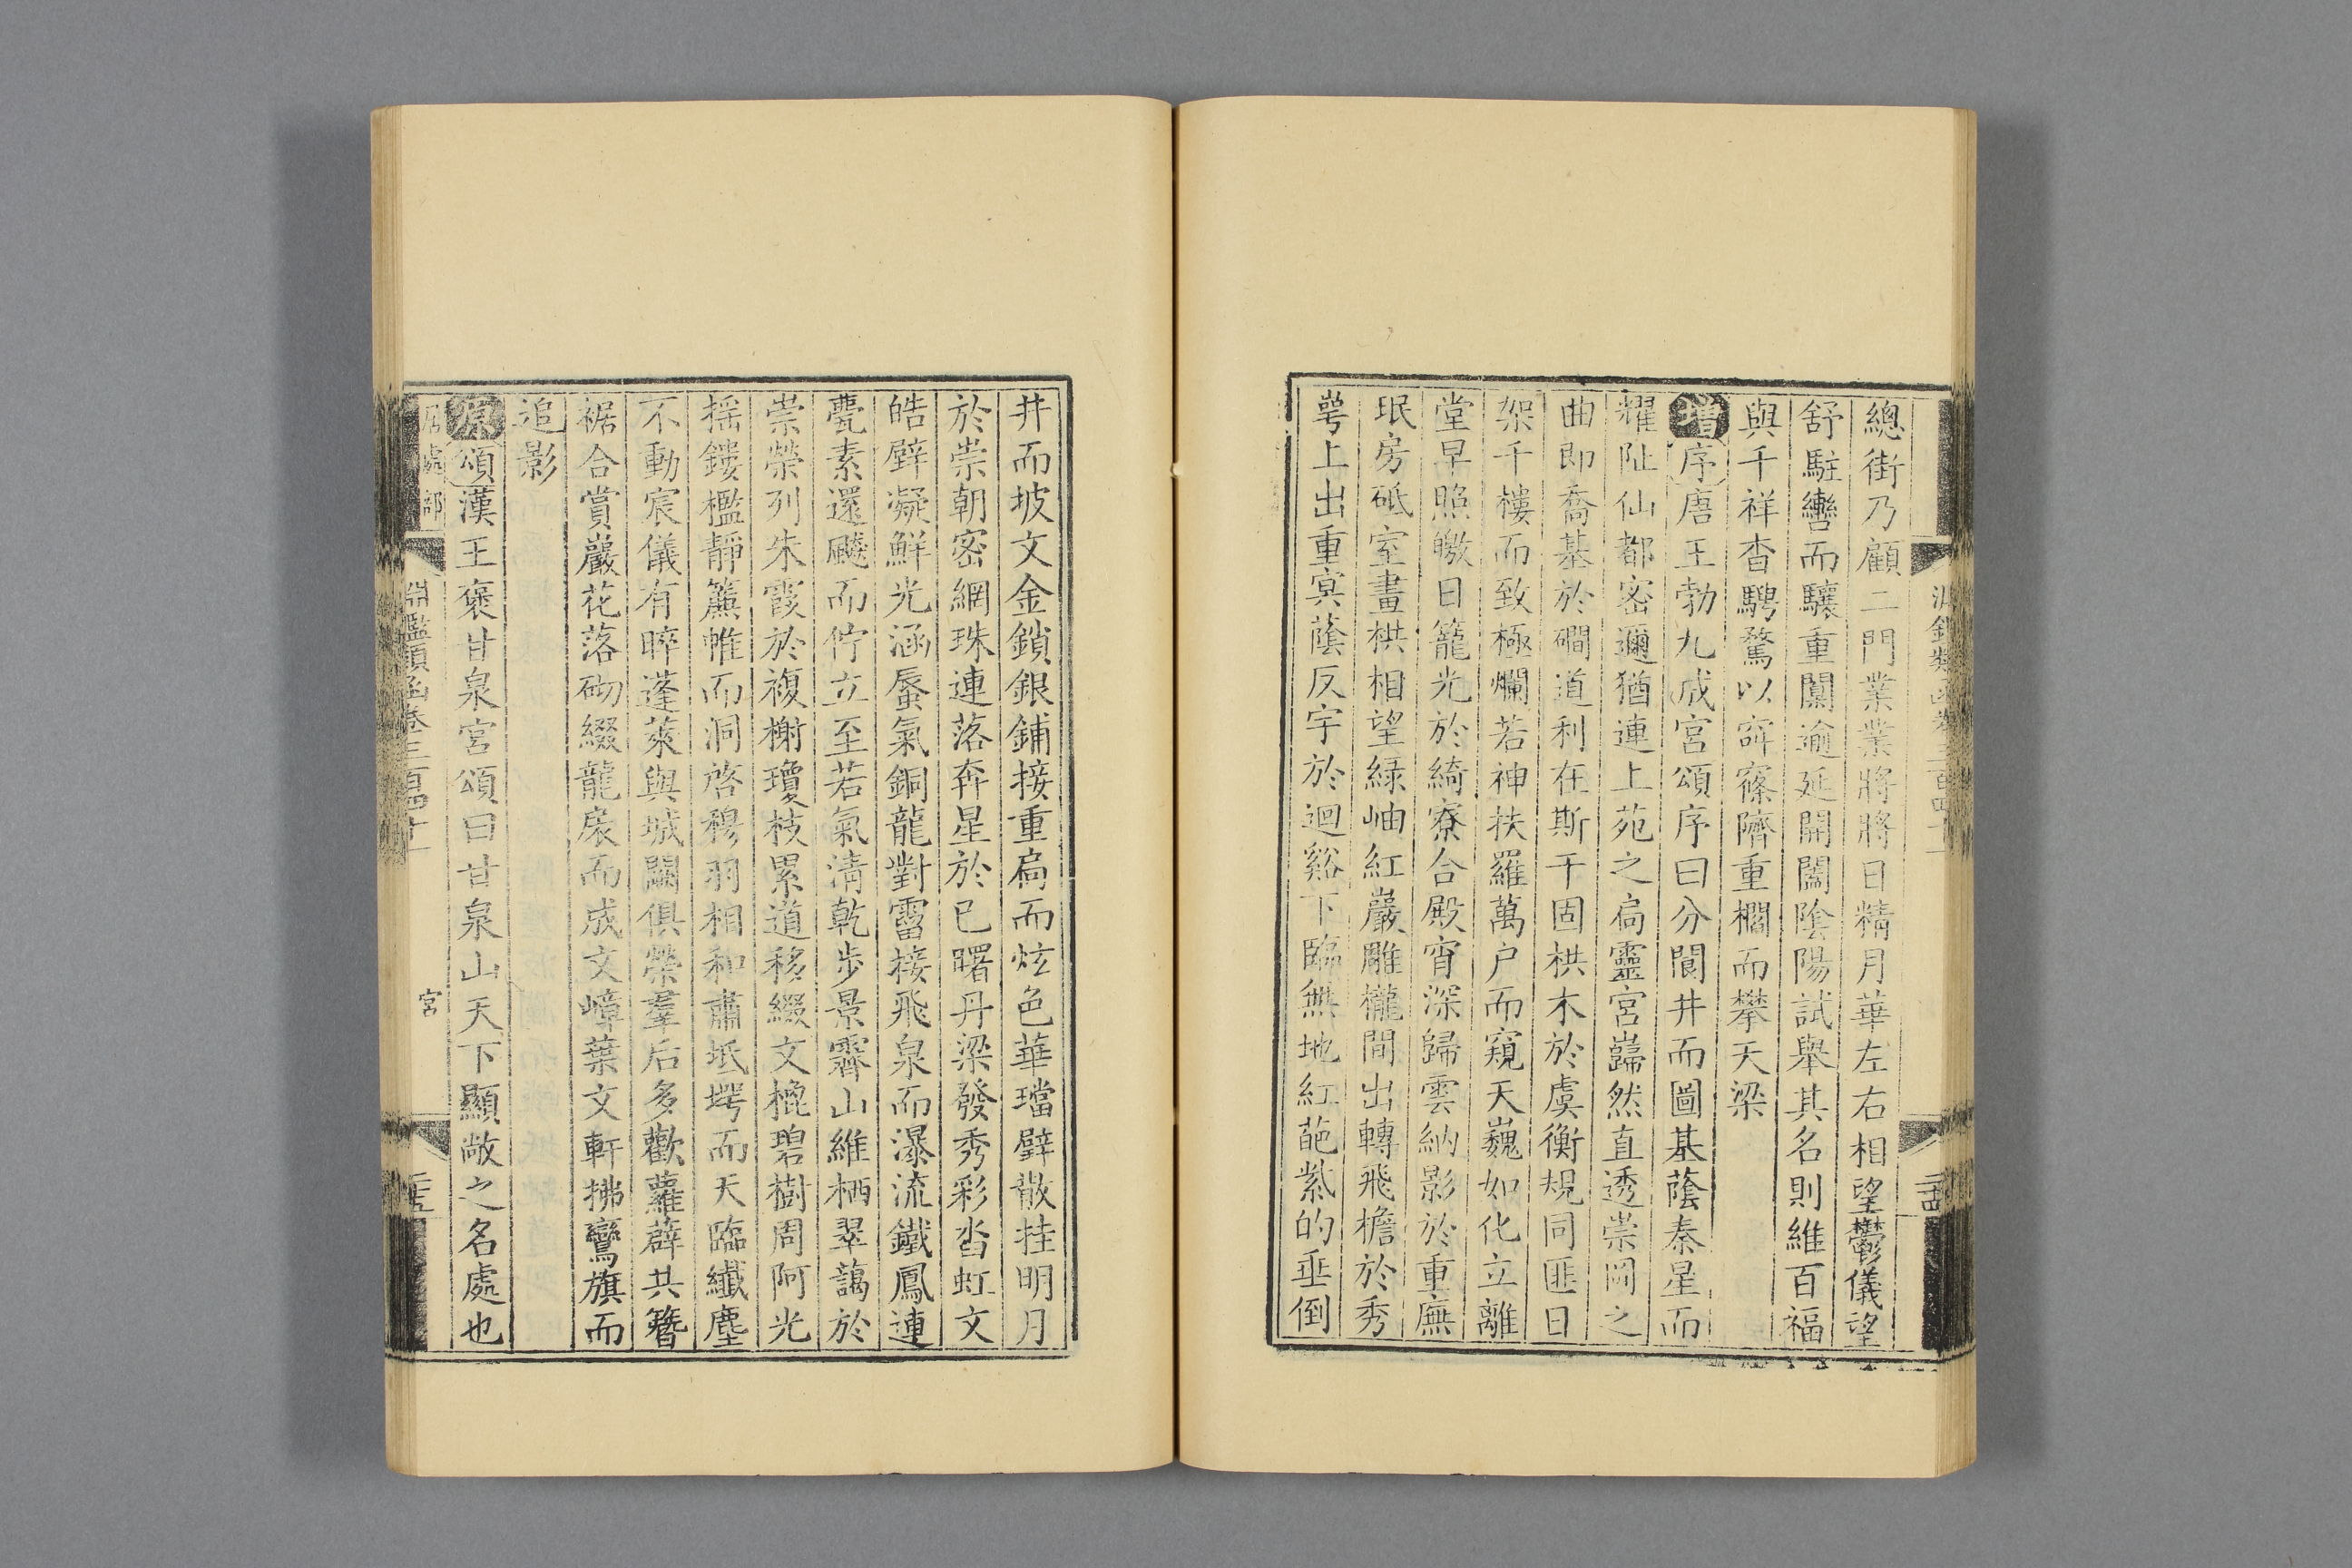 總街乃顧二門業業將將日精月華左右相望鬱儀望
舒駐轡而驤重闑逾延開闔陰陽試舉其名則維百福
與千祥杳騁騖以窲窱隮重櫩而攀天梁
增序唐王勃九成宮頌序曰分閬井而圖基蔭秦星而
耀阯仙都密邇猶連上苑之扃靈宮巋然直透崇岡之
曲即喬基於磵道利在斯干固栱木於虞衡規同匪日
架千樓而致極爛若神扶羅萬户而窺天巍如化立離
堂早照皦日籠光於綺寮合殿宵深歸雲納影於重廡
珉房砥室畫栱相望緑岫紅巖雕櫳間出轉飛檐於秀
崿上出重冥蔭反宇於迴谿下臨無地紅葩紫的垂倒
井而坡文金鎖銀鋪接重扃而炫色華璫璧散挂明月
於崇朝密網珠連落奔星於已曙丹梁發秀彩沓虹文
皓璧凝鮮光涵蜃氣銅龍對霤接飛泉而瀑流鐵鳳連
甍素還飈而佇立至若氣清乾步景霽山維栖翠藹於
崇榮列朱霞於複榭瓊枝累道移綴文㮰碧樹周阿光
摇鏤檻靜簾帷而洞啓穆羽相和肅坻堮而天臨纖塵
不動宸儀有睟蓬萊與城闕俱榮羣后多歡蘿薜共簪
裾合賞巖花落砌綴龍扆而成文嶂葉文軒拂鸞旗而
追影
原頌漢王褒甘泉宮頌曰甘泉山天下顯敞之名處也
居處部 淵鑑類函卷三百四十一 宮 二十五